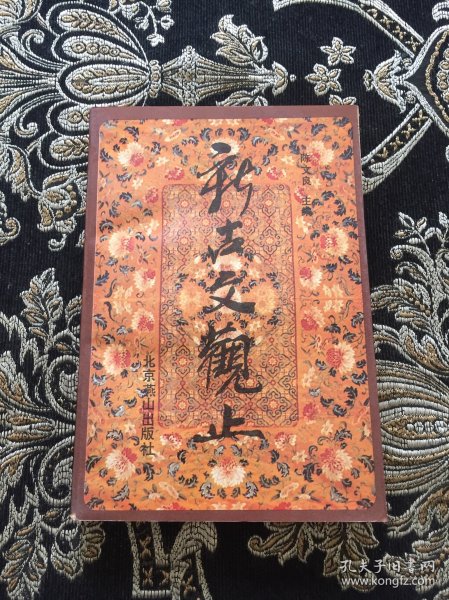 陈文良 主编
新古文觀止
北京燕山出版社
孔夫子旧书网
www.kongfz.com